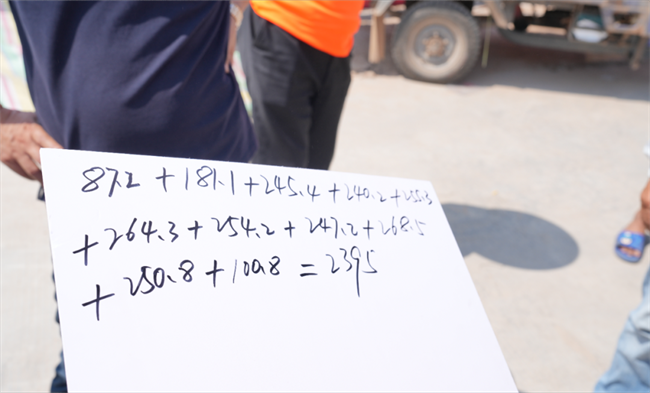 87.2 + 181.1 + 245.4 + 240.2 + 255.3
+ 264.3 + 254.2 + 247.2 + 268.5
+ 250.8 + 100.8 = 2395